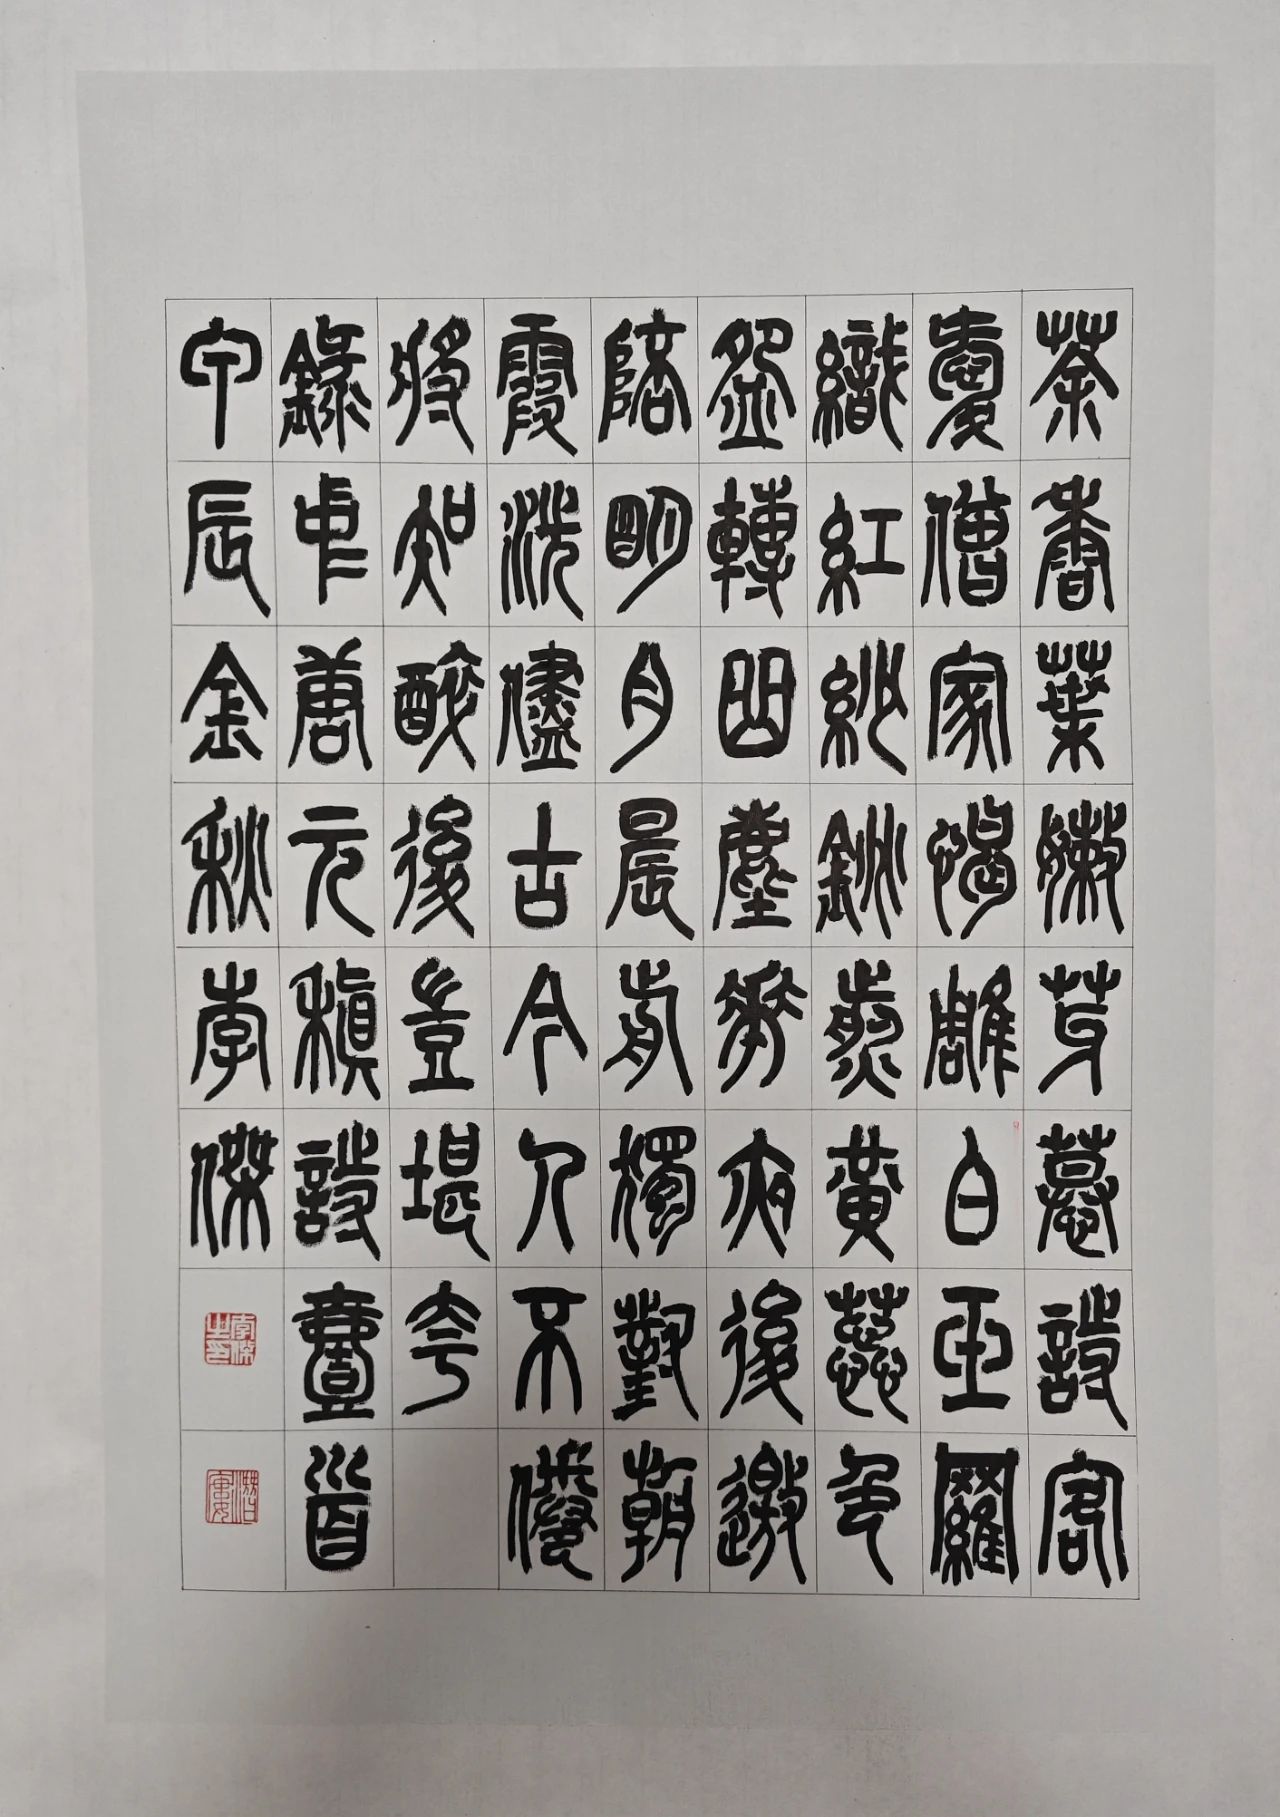 茶香葉嫩芽慕詩客
愛僧家碾雕白玉羅
織紅紗銚煎黃蕊色
盌轉曲塵花夜後邀
陪明月晨前獨對朝
霞洗儘古今人不倦
將知醉後豈堪夸
錄中唐元稹詩壹首
甲辰金秋李傑
李傑之印